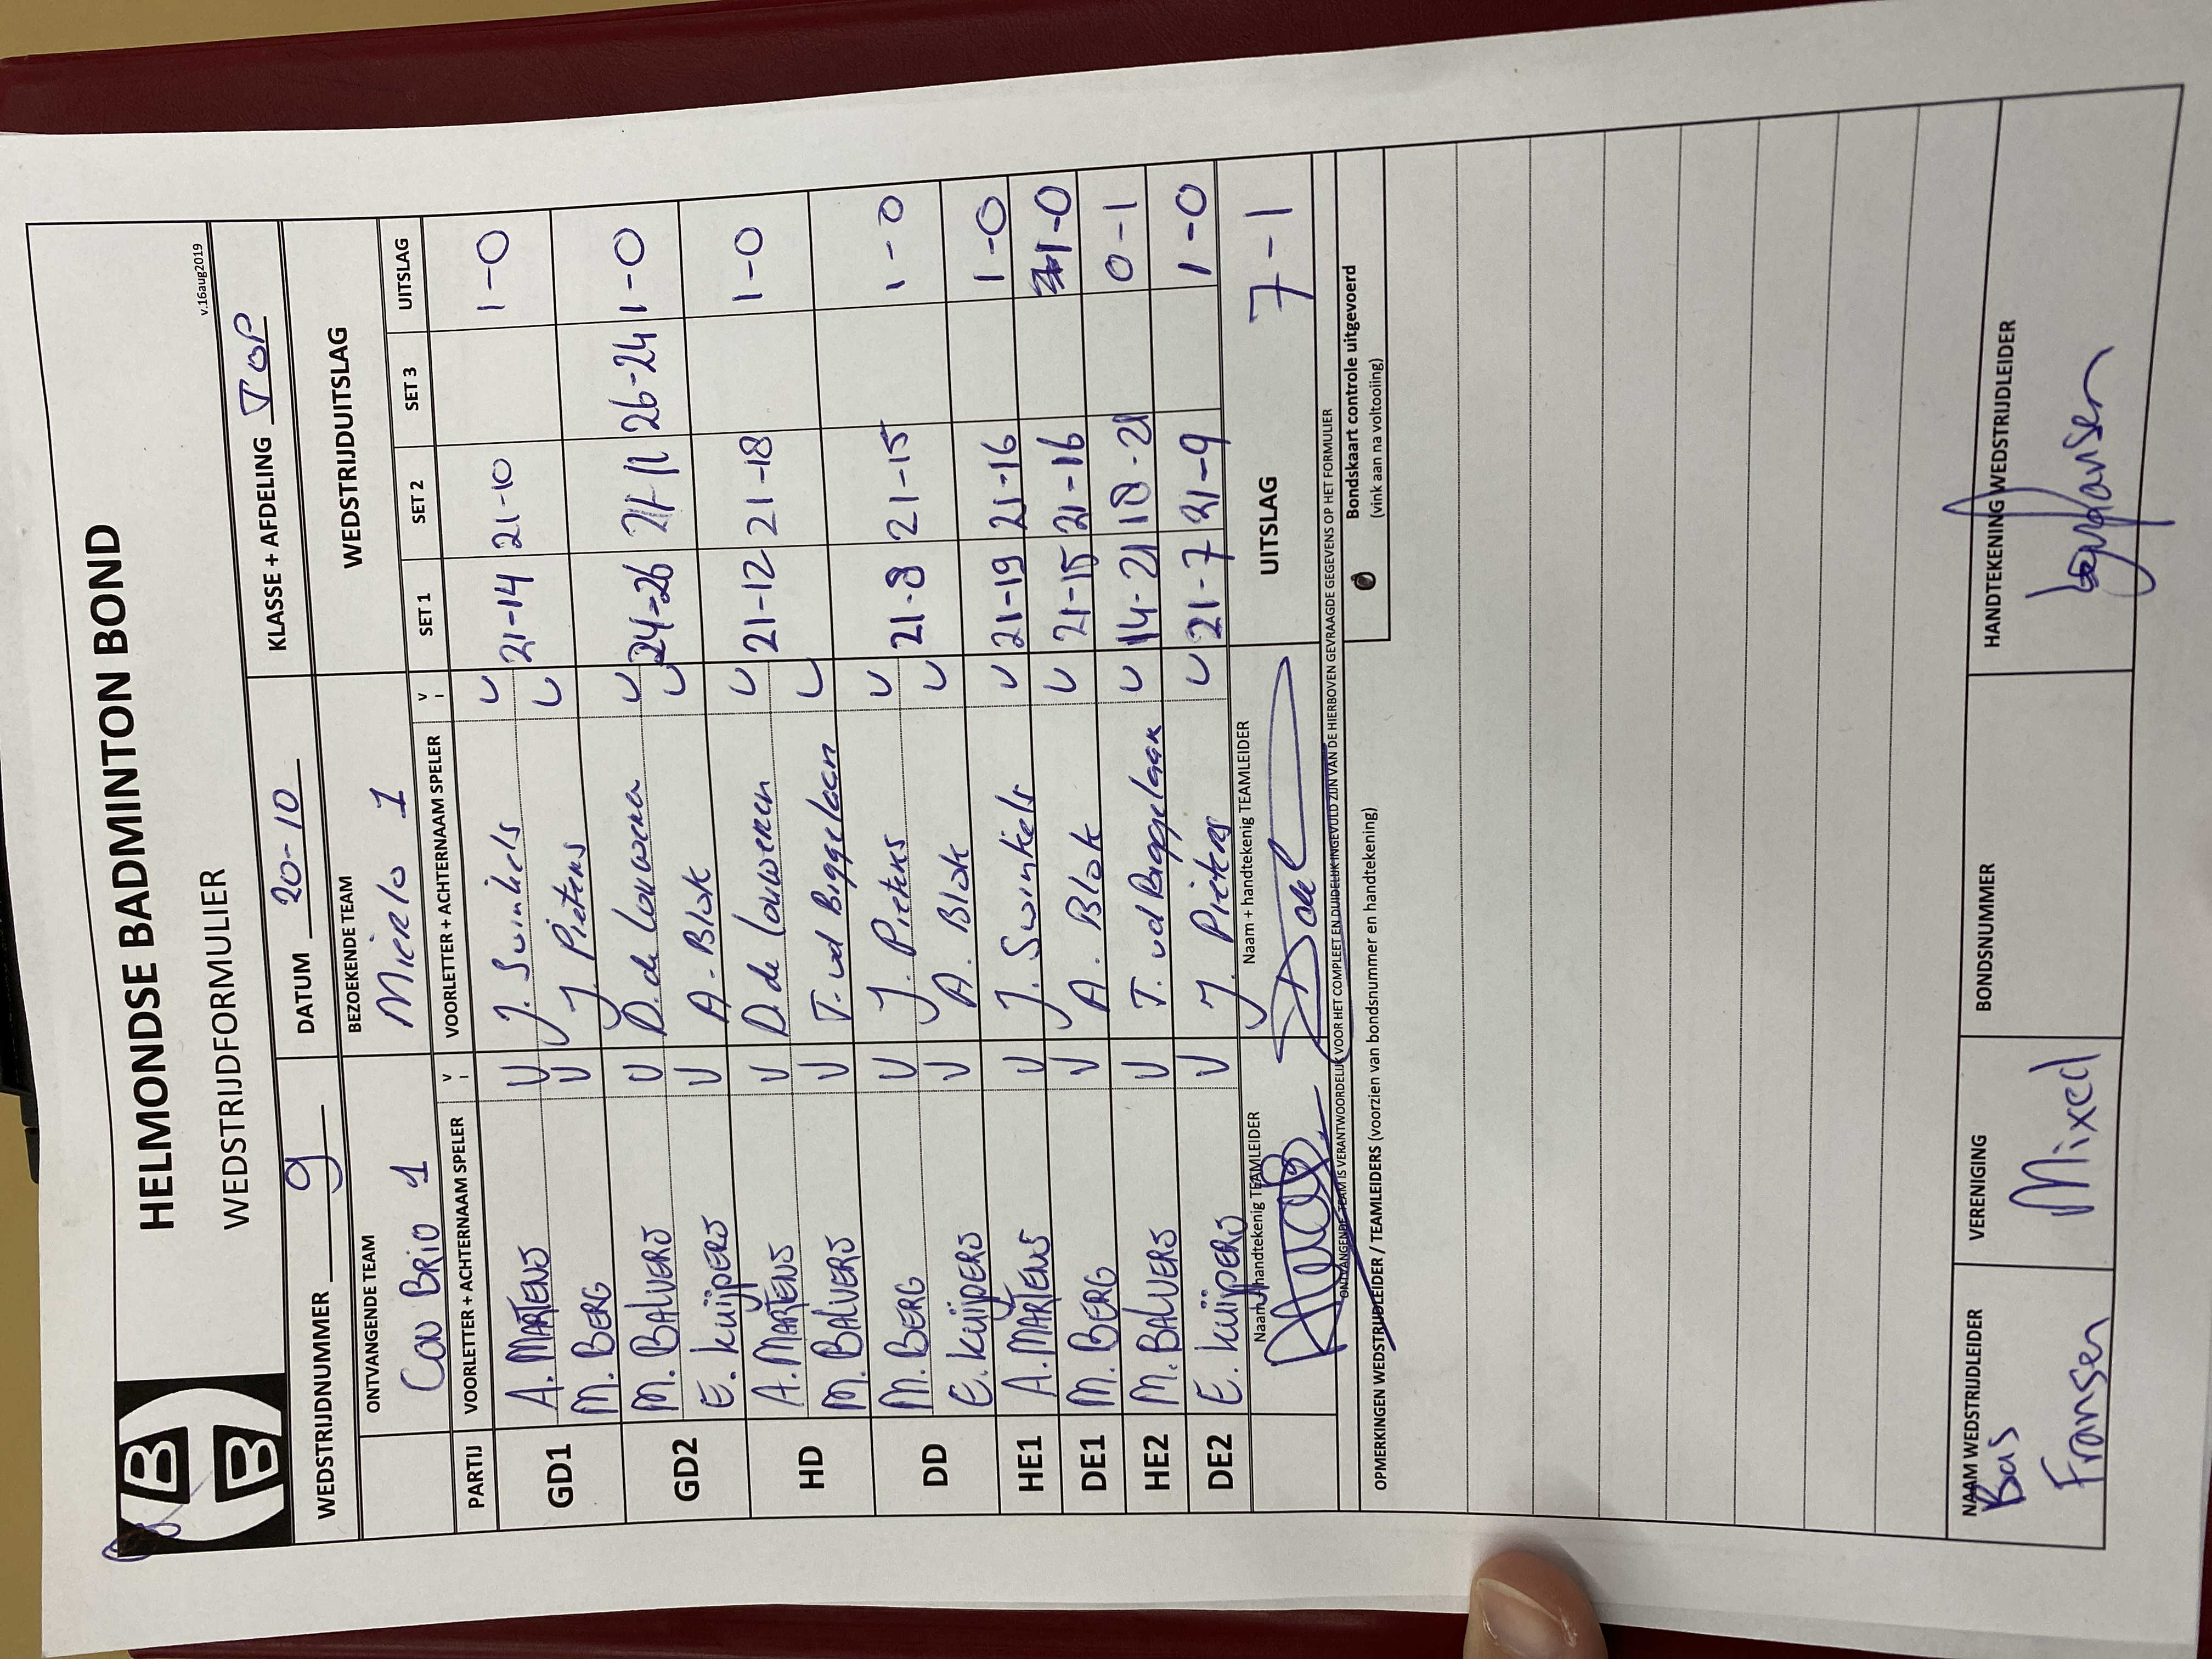 B
B
HELMONDSE BADMINTON BOND
WEDSTRIJDFORMULIER
v.16aug2019
WEDSTRIJDNUMMER 9 DATUM 20-10 KLASSE + AFDELING TOP
ONTVANGENDE TEAM BEZOEKENDE TEAM WEDSTRIJDUITSLAG
Con BRIO 1 Mierlo 1
PARTIJ VOORLETTER + ACHTERNAAM SPELER V VOORLETTER + ACHTERNAAM SPELER V SET 1 SET 2 SET 3 UITSLAG
GD1 A. MARTENS J. Swinkels 21-14 21-10 1-0
M. BERG J. Pieters
GD2 M. BALVERS D. de Louweren 24-26 21-11 26-24 1-0
E. Kuijpers A. Blok
HD A. MARTENS D. de Louweren 21-12 21-18 1-0
M. BALVERS T. vd Biggelaar
DD M. BERG J. Pieters 21-8 21-15 1-0
E. Kuijpers A. Blok
HE1 A. MARTENS J. Swinkels 21-19 21-16 1-0
DE1 M. BERG A. Blok 21-15 21-16 1-0
HE2 M. BALVERS T. vd Biggelaar 14-21 18-21 0-1
DE2 E. Kuijpers J. Pieters 21-7 21-9 1-0
Naam + handtekenig TEAMLEIDER Naam + handtekenig TEAMLEIDER UITSLAG 7-1
ONTVANGENDE TEAM IS VERANTWOORDELIJK VOOR HET COMPLEET EN DUIDELIJK INGEVULD ZIJN VAN DE HIERBOVEN GEVRAAGDE GEGEVENS OP HET FORMULIER
OPMERKINGEN WEDSTRIJDLEIDER / TEAMLEIDERS (voorzien van bondsnummer en handtekening)
Bondskaart controle uitgevoerd
(vink aan na voltooiing)
NAAM WEDSTRIJDLEIDER VERENIGING BONDSNUMMER HANDTEKENING WEDSTRIJDLEIDER
Bas
Fransen Mixed